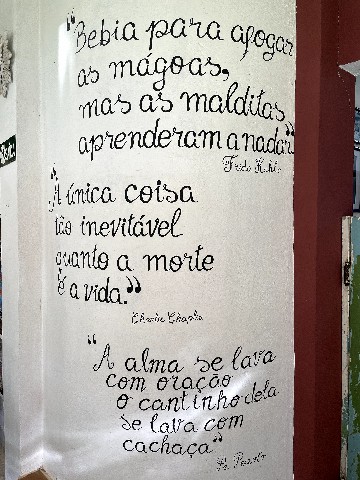 "Bebia para afogar
as mágoas,
mas as malditas
aprenderam a nadar"
Frida Kahlo
"A única coisa
tão inevitável
quanto a morte
é a vida."
Charlie Chaplin
"A alma se lava
com oração
o cantinho dela
se lava com
cachaça"